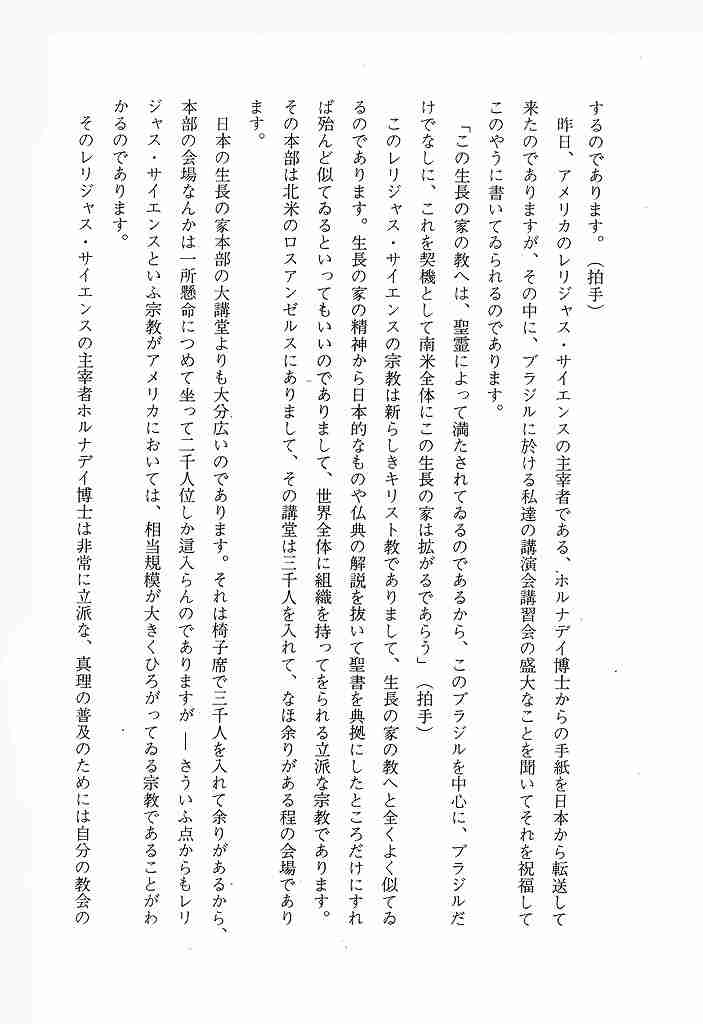 するのであります。（拍手）
昨日、アメリカのレリジャス・サイエンスの主宰者である、ホルナデイ博士からの手紙を日本から転送して
来たのでありますが、その中に、ブラジルに於ける私達の講演会講習会の盛大なことを聞いてそれを祝福して
このやうに書いてゐられるのであります。
「この生長の家の教へは、聖霊によって満たされてゐるのであるから、このブラジルを中心に、ブラジルだ
けでなしに、これを契機として南米全体にこの生長の家は拡がるであらう」（拍手）
このレリジャス・サイエンスの宗教は新らしきキリスト教でありまして、生長の家の教へと全くよく似てゐ
るのであります。生長の家の精神から日本的なものや仏典の解説を抜いて聖書を典拠にしたところだけにすれ
ば殆んど似てゐるといってもいいのでありまして、世界全体に組織を持ってをられる立派な宗教であります。
その本部は北米のロスアンゼルスにありまして、その講堂は三千人を入れて、なほ余りがある程の会場であり
ます。
日本の生長の家本部の大講堂よりも大分広いのであります。それは椅子席で三千人を入れて余りがあるから、
本部の会場なんかは一所懸命につめて坐って二千人位しか這入らんのでありますが ― さういふ点からもレリ
ジャス・サイエンスといふ宗教がアメリカにおいては、相当規模が大きくひろがってゐる宗教であることがわ
かるのであります。
そのレリジャス・サイエンスの主宰者ホルナデイ博士は非常に立派な、真理の普及のためには自分の教会の